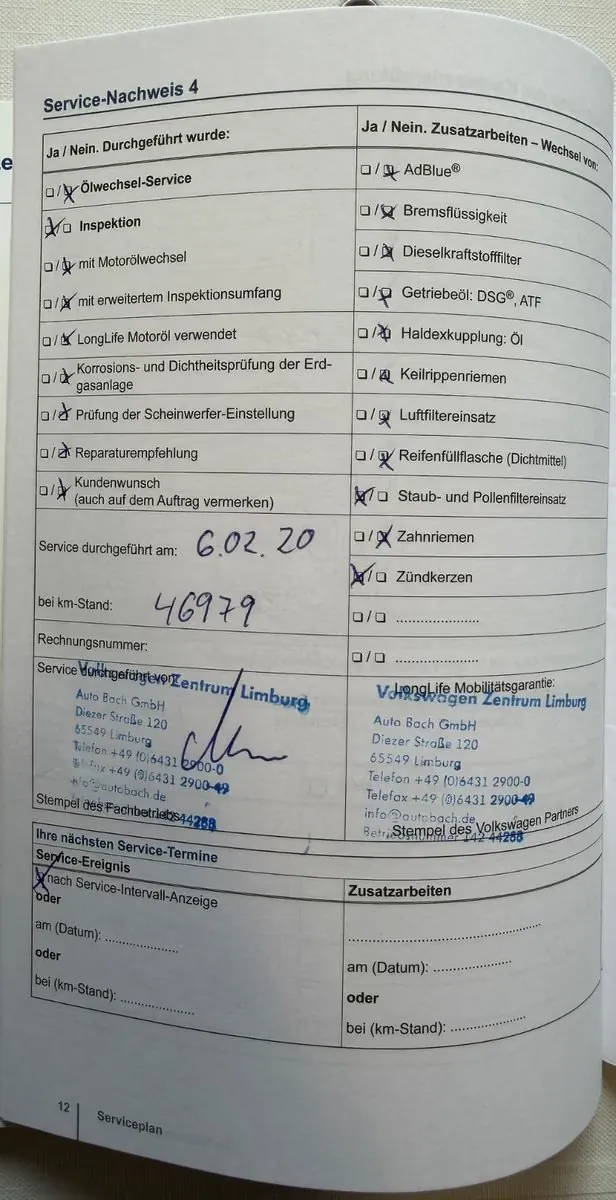 Service-Nachweis 4
Ja / Nein. Durchgeführt wurde:
Ölwechsel-Service
Inspektion
mit Motorölwechsel
mit erweitertem Inspektionsumfang
LongLife Motoröl verwendet
Korrosions- und Dichtheitsprüfung der Erd-
gasanlage
Prüfung der Scheinwerfer-Einstellung
Reparaturempfehlung
Kundenwunsch
(auch auf dem Auftrag vermerken)
Service durchgeführt am: 6.02.20
bei km-Stand: 46979
Rechnungsnummer:
Service durchgeführt von:
Volkswagen Zentrum Limburg
Auto Bach GmbH
Diezer Straße 120
65549 Limburg
Telefon +49 (0)6431 2900-0
Telefax +49 (0)6431 2900-49
info@autobach.de
Stempel des Fachbetriebs
44288
Ja / Nein. Zusatzarbeiten – Wechsel von:
AdBlue®
Bremsflüssigkeit
Dieselkraftstofffilter
Getriebeöl: DSG®, ATF
Haldexkupplung: Öl
Keilrippenriemen
Luftfiltereinsatz
Reifenfüllflasche (Dichtmittel)
Staub- und Pollenfiltereinsatz
Zahnriemen
Zündkerzen
LongLife Mobilitätsgarantie:
Volkswagen Zentrum Limburg
Auto Bach GmbH
Diezer Straße 120
65549 Limburg
Telefon +49 (0)6431 2900-0
Telefax +49 (0)6431 2900-49
info@autobach.de
Betriebsnummer 142 44288
Stempel des Volkswagen Partners
Ihre nächsten Service-Termine
Service-Ereignis
nach Service-Intervall-Anzeige
oder
am (Datum):
oder
bei (km-Stand):
Zusatzarbeiten
am (Datum):
oder
bei (km-Stand):
12
Serviceplan